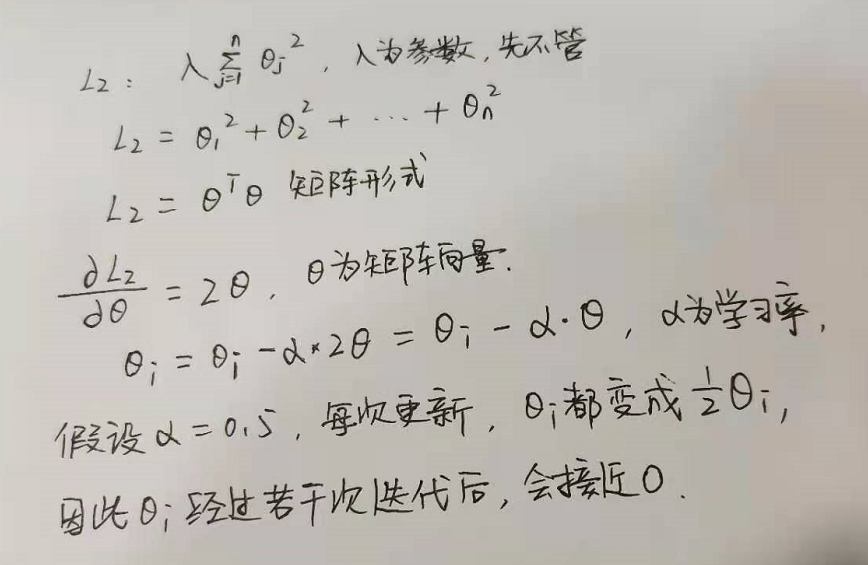 L₂: λ∑ⱼ₌₁ⁿ θⱼ², λ为参数,先不管
L₂ = θ₁² + θ₂² + ... + θₙ²
L₂ = θᵀθ 矩阵形式
∂L₂/∂θ = 2θ, θ为矩阵向量.
θᵢ = θᵢ - α*2θ = θᵢ - α·θ, α为学习率,
假设α = 0.5, 每次更新, θᵢ都变成½θᵢ,
因此θᵢ经过若干次迭代后, 会接近0.